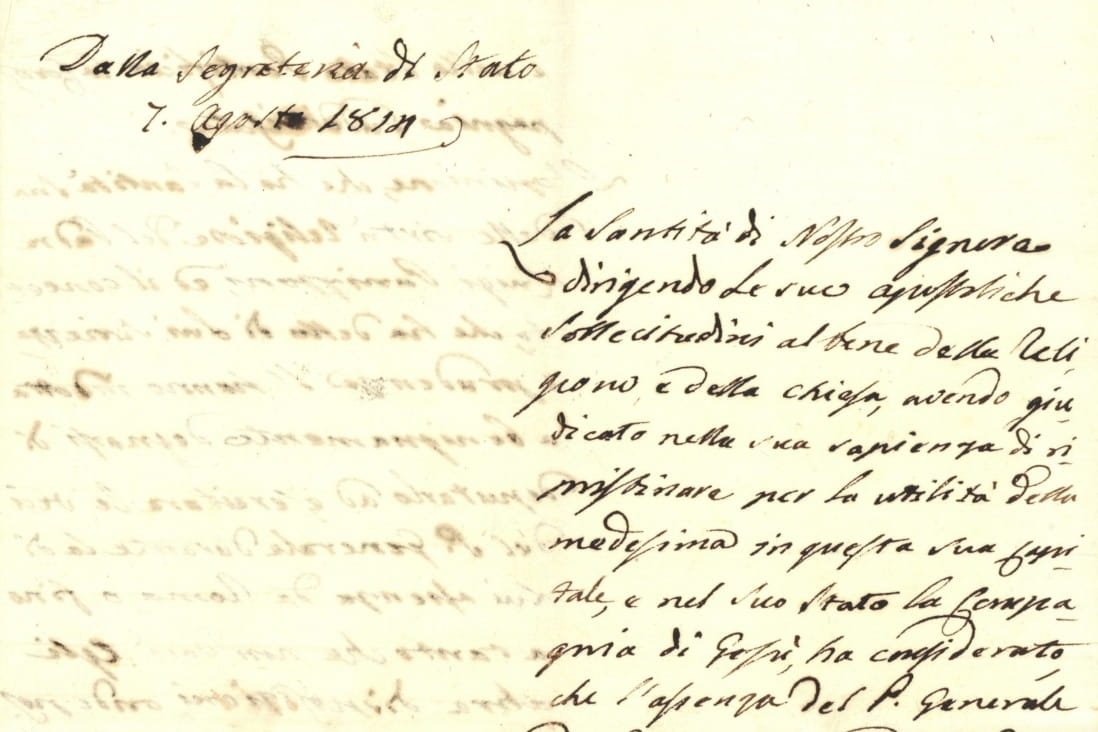 Dalla Segreteria di Stato
7. Agosto 1814
La Santità di Nostro Signore
dirigendo Le sue apostoliche
sollecitudini al bene della Reli
gione, e della chiesa, avendo giu
dicato nella sua sapienza di ri-
pristinare per la utilità della
medesima in questa sua Capi-
tale, e nel suo Stato la Compa-
gnia di Gesù, ha considerato,
che l'assenza del P. Generale